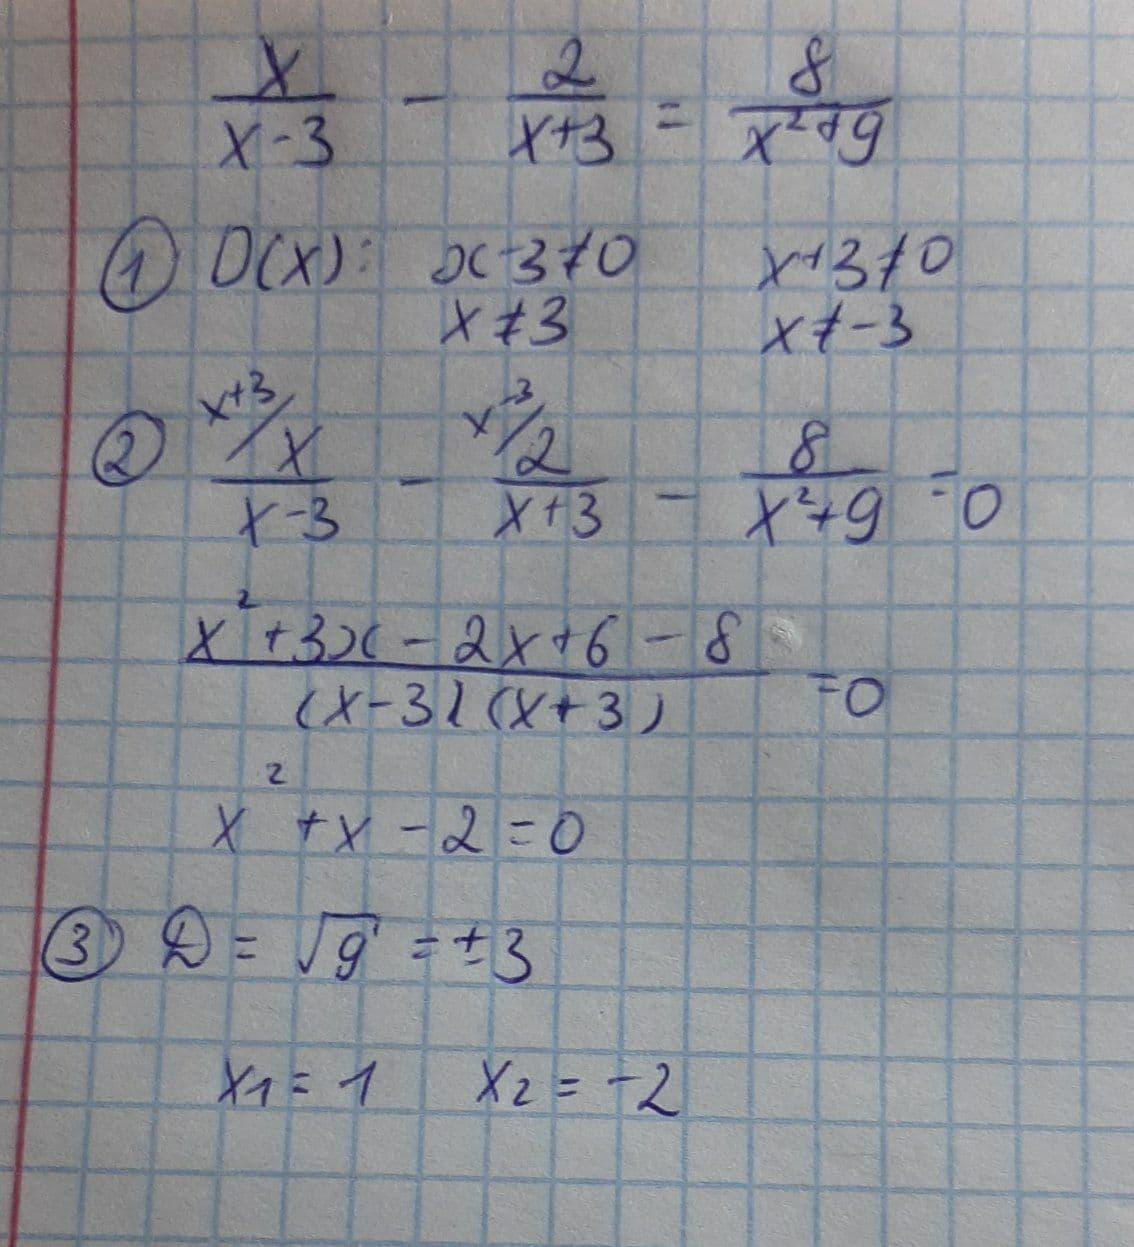 x/(x-3) - 2/(x+3) = 8/(x²+9)
① D(x): x-3≠0 x+3≠0
x≠3 x≠-3
② x+3/ x/(x-3) - x-3/ 2/(x+3) - 8/(x²+9) = 0
(x²+3x-2x+6-8)/((x-3)(x+3)) = 0
x²+x-2=0
③ D = √9 = ±3
x₁ = 1 x₂ = -2